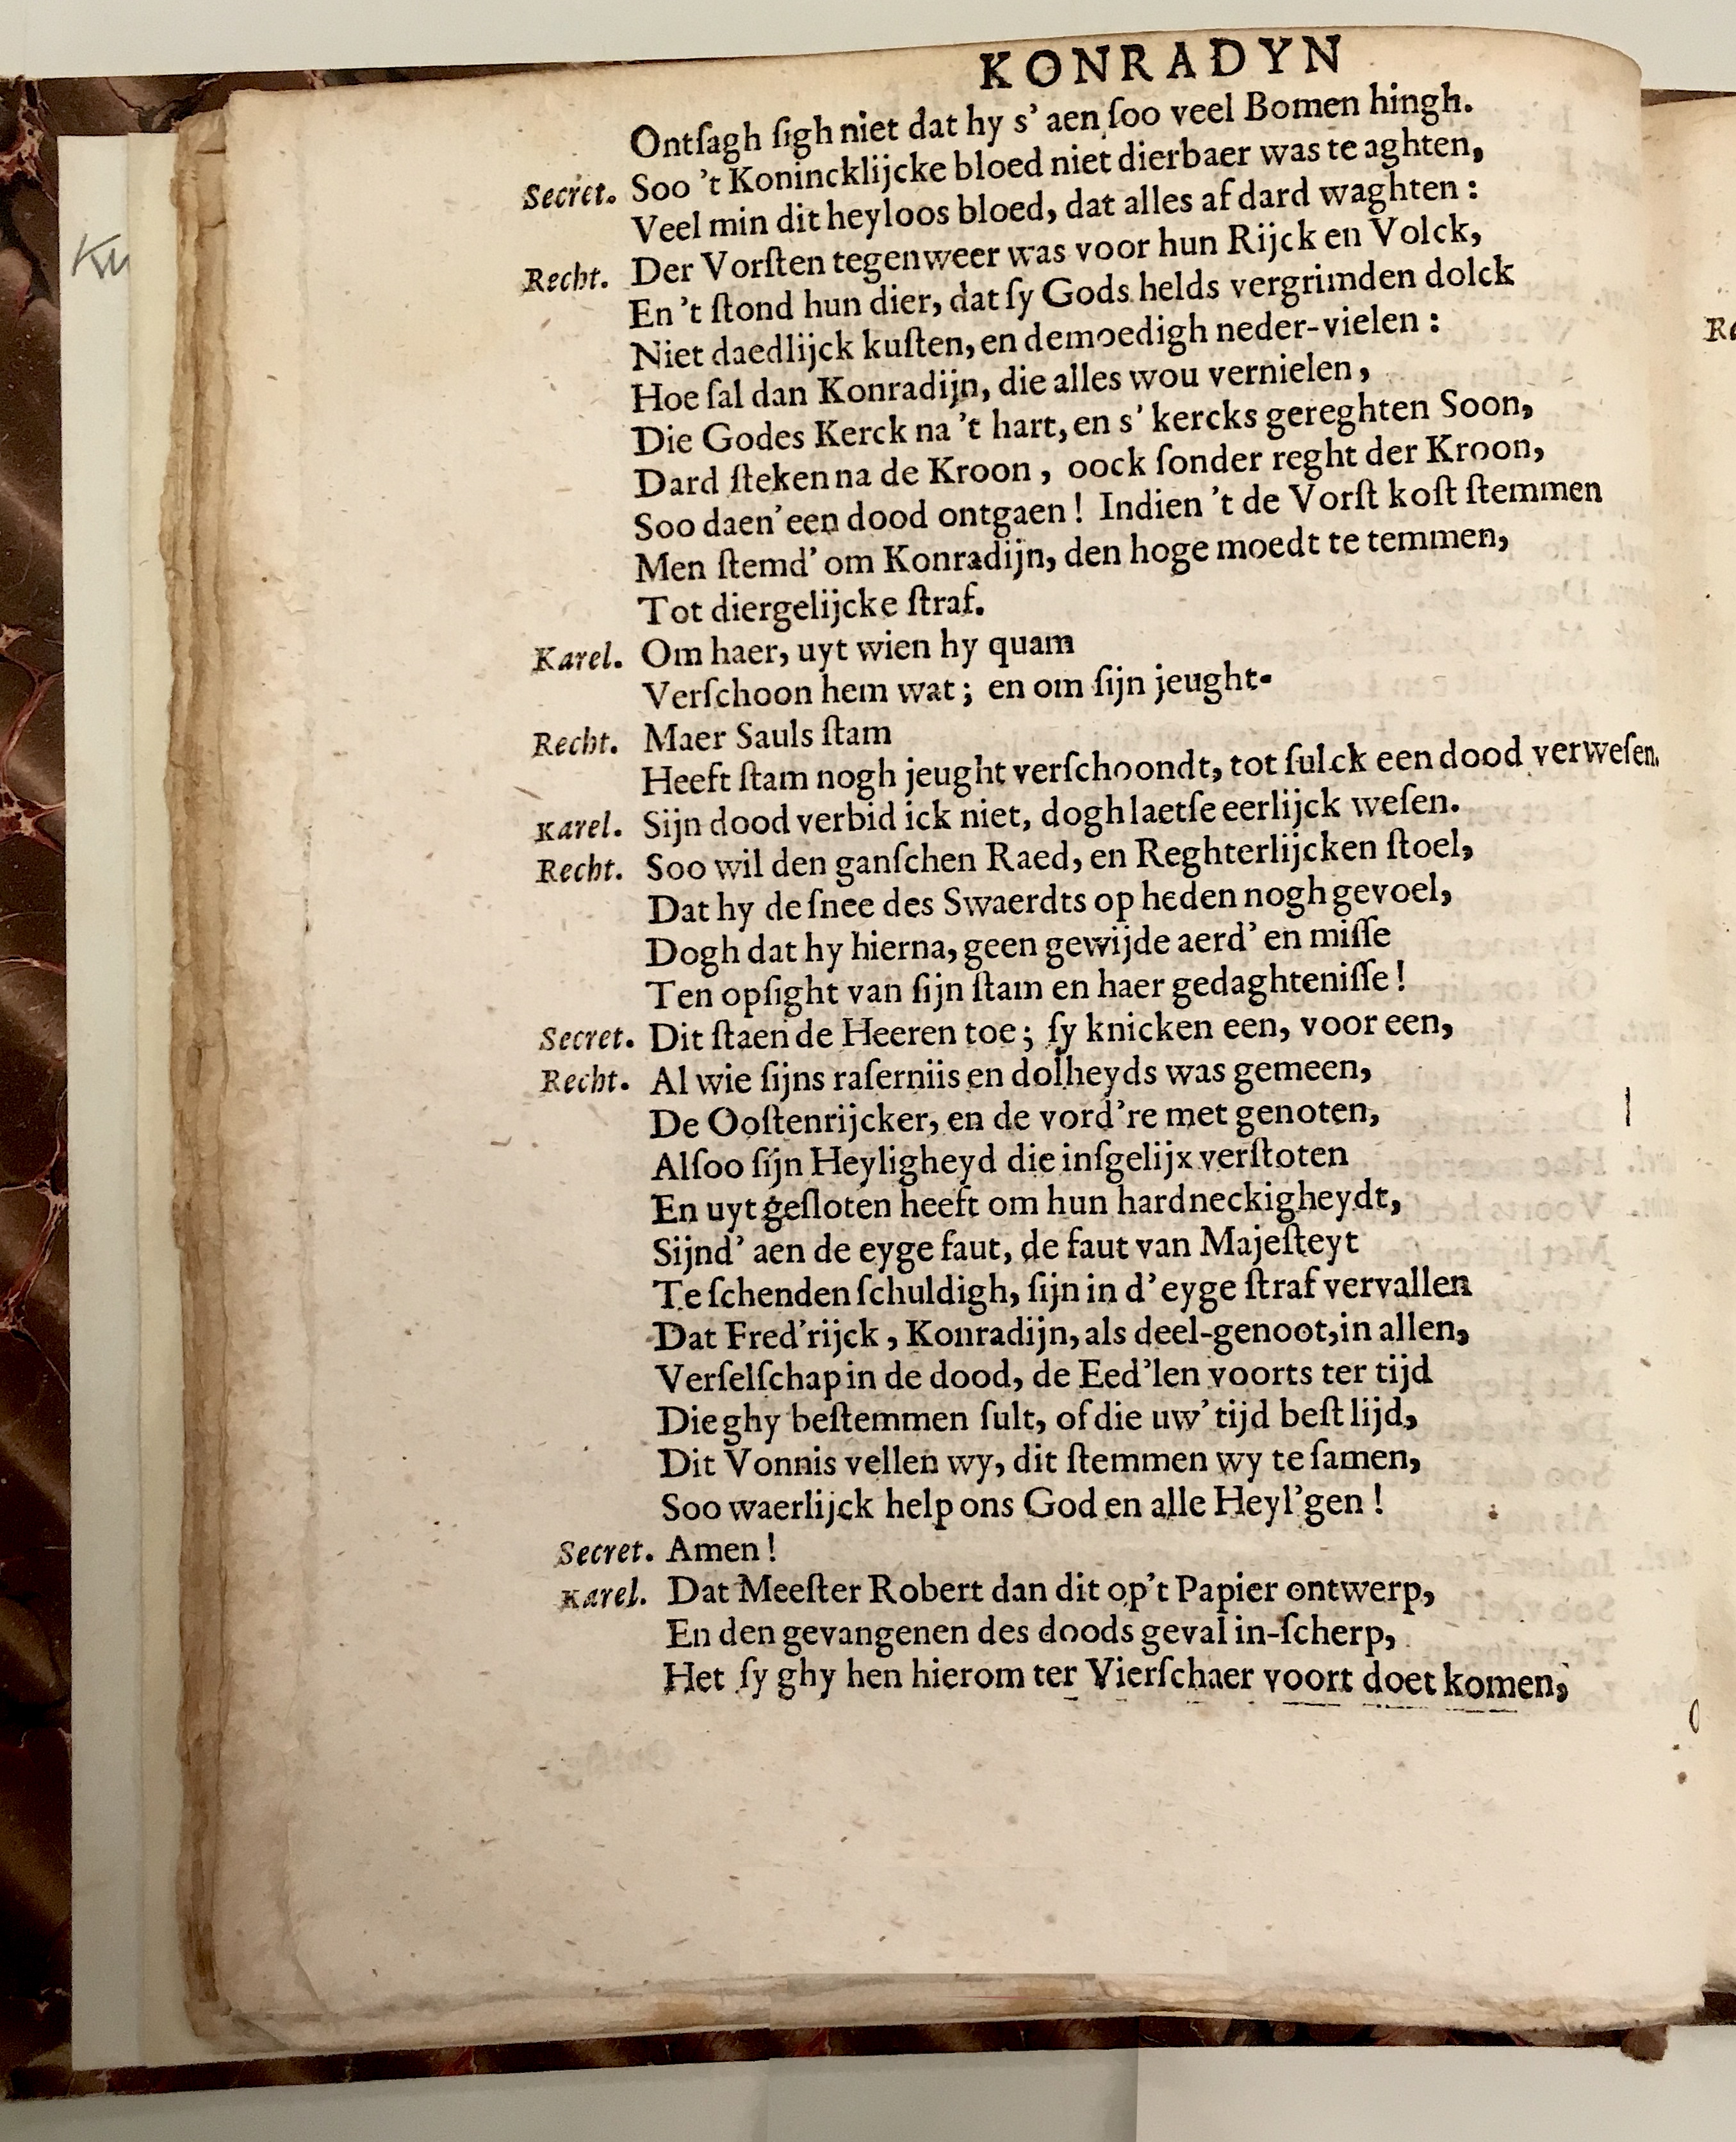 KONRADYN
Ontſagh ſigh niet dat hy s' aen ſoo veel Bomen hingh.
Secret. Soo 't Konincklijcke bloed niet dierbaer was te aghten,
Veel min dit heyloos bloed, dat alles af dard waghten :
Recht. Der Vorſten tegenweer was voor hun Rijck en Volck,
En 't ſtond hun dier, dat ſy Gods helds vergrimden dolck
Niet daedlijck kuſten, en demoedigh neder-vielen :
Hoe ſal dan Konradijn, die alles wou vernielen,
Die Godes Kerck na 't hart, en s' kercks gereghten Soon,
Dard ſteken na de Kroon, oock ſonder reght der Kroon,
Soo daen' een dood ontgaen! Indien 't de Vorſt koſt ſtemmen
Men ſtemd' om Konradijn, den hoge moedt te temmen,
Tot diergelijcke ſtraf.
Karel. Om haer, uyt wien hy quam
Verſchoon hem wat; en om ſijn jeught-
Recht. Maer Sauls ſtam
Heeft ſtam nogh jeught verſchoondt, tot ſulck een dood verweſen.
Karel. Sijn dood verbid ick niet, dogh laetſe eerlijck weſen.
Recht. Soo wil den ganſchen Raed, en Reghterlijcken ſtoel,
Dat hy de ſnee des Swaerdts op heden nogh gevoel,
Dogh dat hy hierna, geen gewijde aerd' en miſſe
Ten opſight van ſijn ſtam en haer gedaghteniſſe!
Secret. Dit ſtaen de Heeren toe; ſy knicken een, voor een,
Recht. Al wie ſijns raſerniis en dolheyds was gemeen,
De Ooſtenrijcker, en de vord're met genoten,
Alſoo ſijn Heyligheyd die inſgelijx verſtoten
En uyt geſloten heeft om hun hardneckigheydt,
Sijnd' aen de eyge faut, de faut van Majeſteyt
Te ſchenden ſchuldigh, ſijn in d' eyge ſtraf vervallen
Dat Fred'rijck, Konradijn, als deel-genoot, in allen,
Verſelſchap in de dood, de Eed'len voorts ter tijd
Die ghy beſtemmen ſult, of die uw' tijd beſt lijd,
Dit Vonnis vellen wy, dit ſtemmen wy te ſamen,
Soo waerlijck help ons God en alle Heyl'gen!
Secret. Amen!
Karel. Dat Meeſter Robert dan dit op't Papier ontwerp,
En den gevangenen des doods geval in-ſcherp,
Het ſy ghy hen hierom ter Vierſchaer voort doet komen,